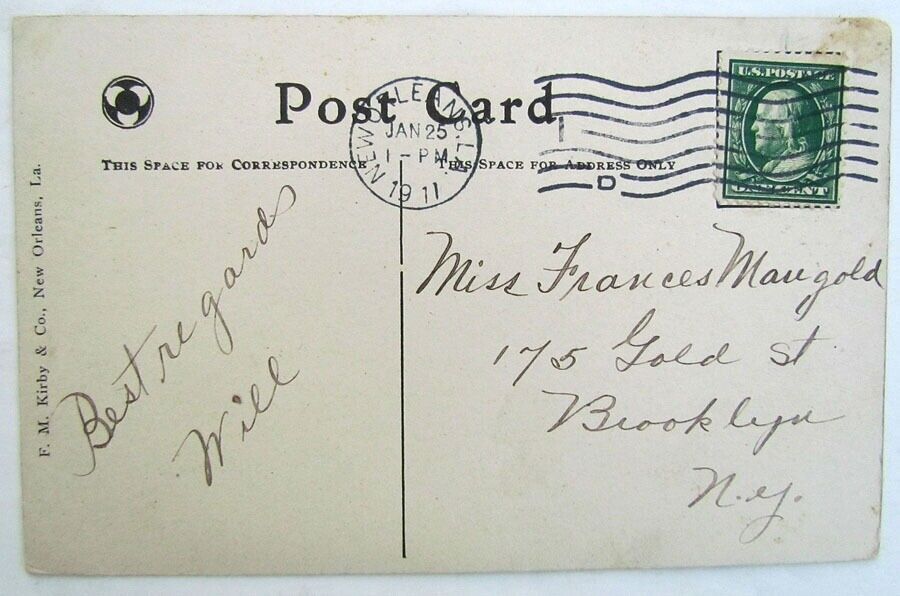 Post Card
NEW ORLEANS, LA.
JAN 25
1 - PM
1911
D
U.S. POSTAGE
ONE CENT
THIS SPACE FOR CORRESPONDENCE
THIS SPACE FOR ADDRESS ONLY
F. M. Kirby & Co., New Orleans, La.
Best regards
Will
Miss Frances Mangold
175 Gold St
Brooklyn
N.Y.